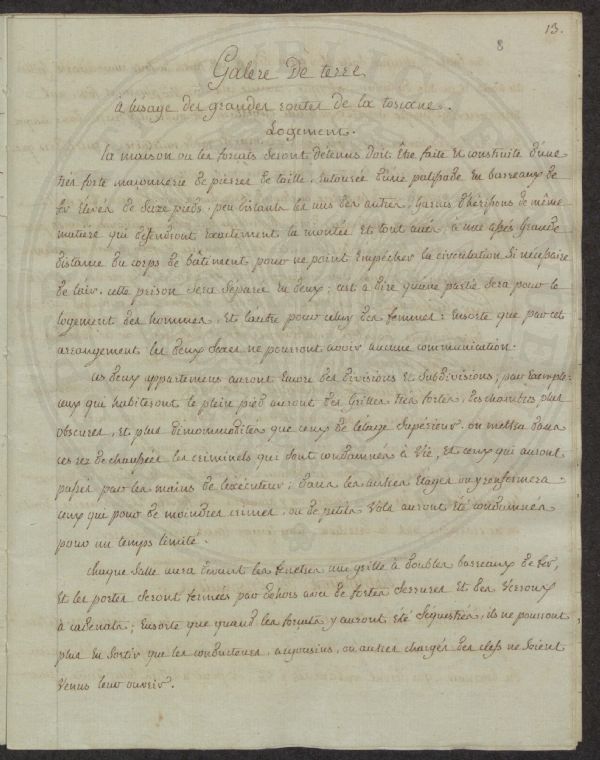 13.
8
Galere De terre
à lusage des grandes routes de la toscane.
Logement.
La maison ou les forcats seront détenus doit Être faite et construite d'une
très forte maconnerie de pierres de taille, Entourée d'une palissade En barreaux de
fer Elevés de seize pieds, peu distants les uns des autres, Garnis d'hérissons de même
matiere qui défendront Exactement la montée Et tout acces, à une assés Grande
distance du corps de bâtiment pour ne point Empêcher la circulation si nécéssaire
de lair. cette prison sera séparée En deux; cest à dire qu'une partie sera pour le
logement des hommes, Et lautre pour celuy des femmes: Ensorte que par cet
arrangement les deux sexes ne pourront avoir aucune communication.
Ces deux appartemens auront Encore des divisions Et subdivisions; par Exemple:
ceux qui habiteront le plein pied auront des Grilles très fortes, des chambres plus
obscures, Et plus dincommodités que ceux de létage supérieur. on mettra dans
ces rez de chaussées les criminels qui sont condamnés à vie, Et ceux qui auront
passés par les mains de lexécuteur; dans les autres Etages on y renfermera
ceux qui pour de moindres crimes, ou de petits vols auront Eté condamnés
pour un temps limité.
Chaque salle aura devant les fenetres une grille à doubles barreaux de fer,
Et les portes seront fermées par dehors avec de fortes serrures Et des verroux
à cadenats; Ensorte que quand les forcats y auront Eté séquestrés, ils ne pourront
plus En sortir que les conducteurs, argousins, ou autres chargés des clefs ne soient
venus leur ouvrir.